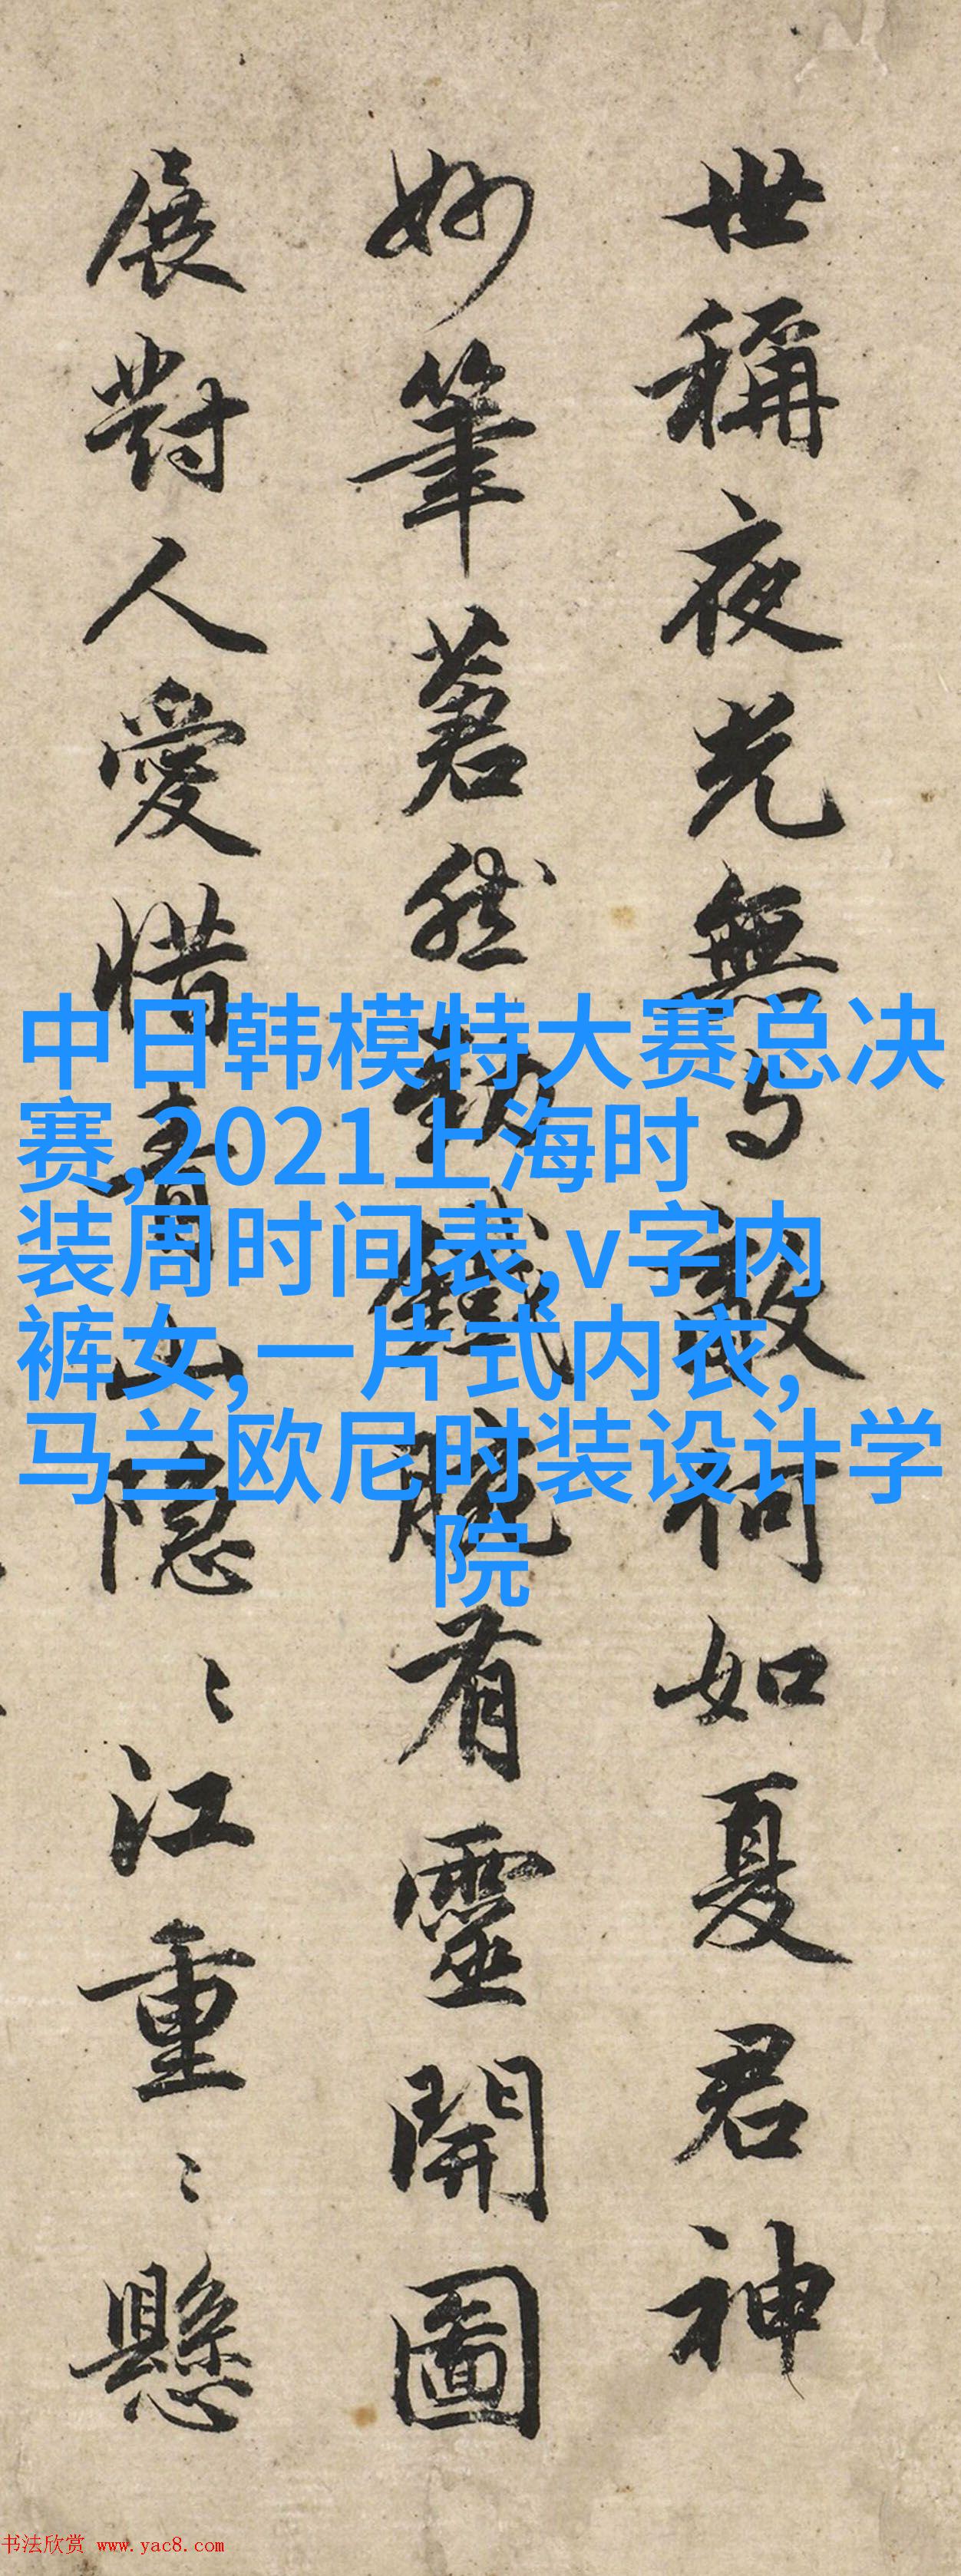 世稱夜光無與敵何如夏君神
妙筆著然鐵腕有靈開圖
展對人愛惜青山隠〻江重〻懸
中日韩模特大赛总决
赛,2021上海时
装周时间表,v字内
裤女,一片式内衣,
马兰欧尼时装设计学
院
书法欣赏 www.yac8.com